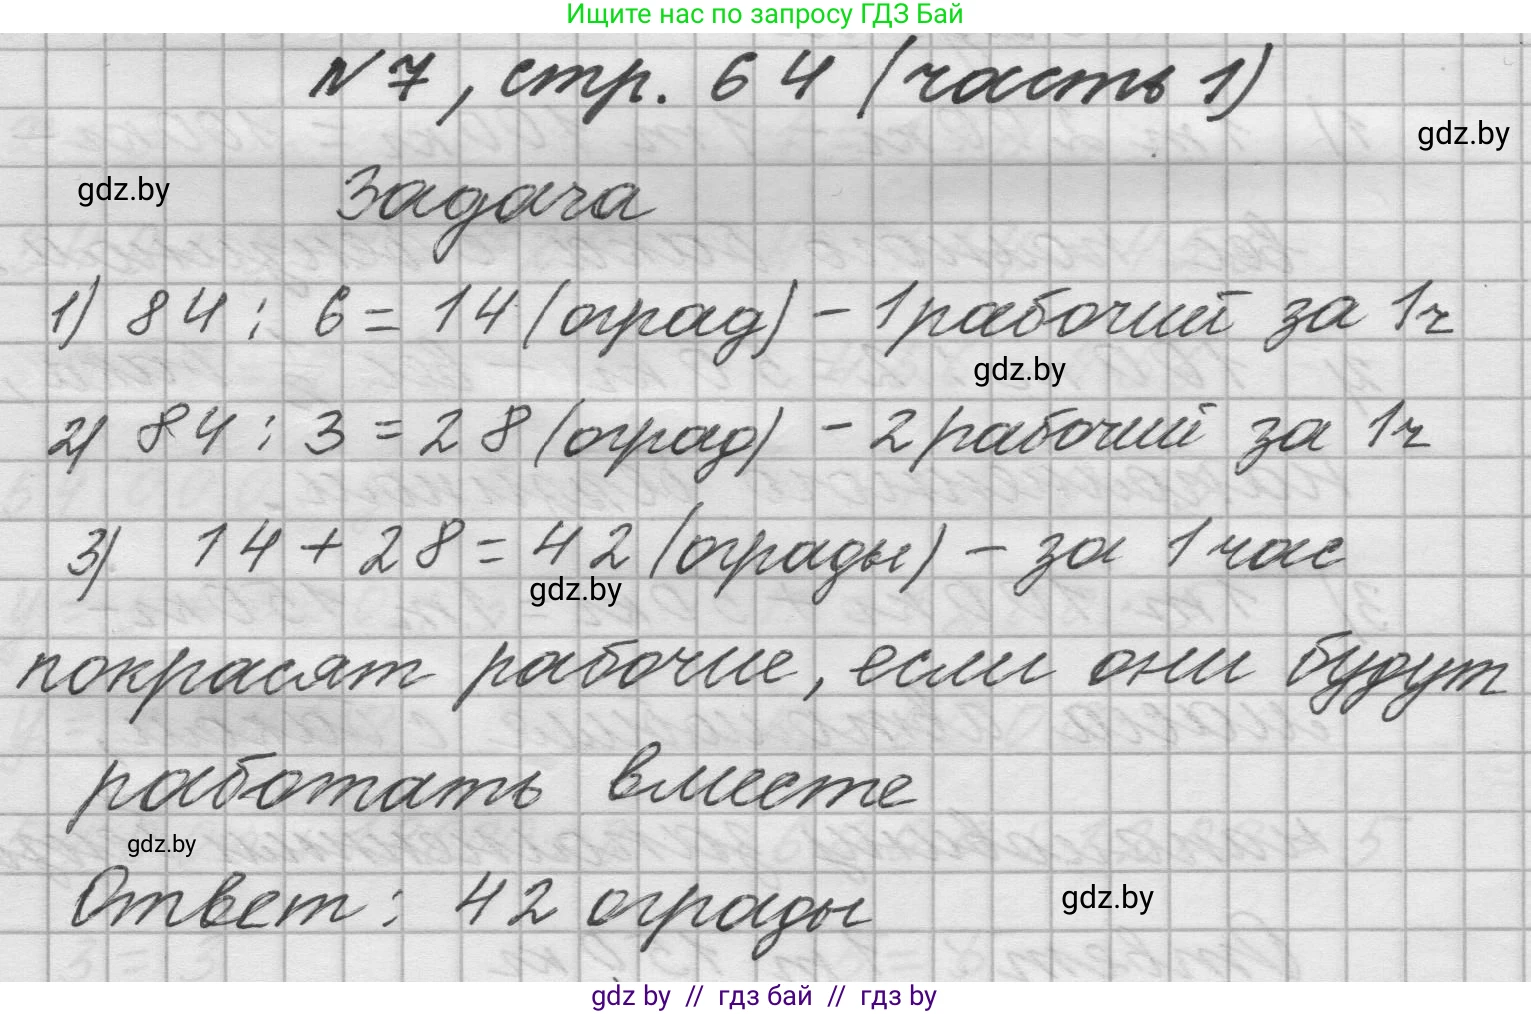 Ищите нас по запросу ГДЗ Бай
№7, стр. 64 (часть 1)
gdz.by
gdz.by
Задача
1) 84 : 6 = 14 (оград) - 1 рабочий за 1ч
gdz.by
2) 84 : 3 = 28 (оград) - 2 рабочий за 1ч
3) 14 + 28 = 42 (ограды) - за 1 час
gdz.by
покрасят рабочие, если они будут
работать вместе
gdz.by
Ответ: 42 ограды
gdz.by
gdz by // гдз бай // гдз by